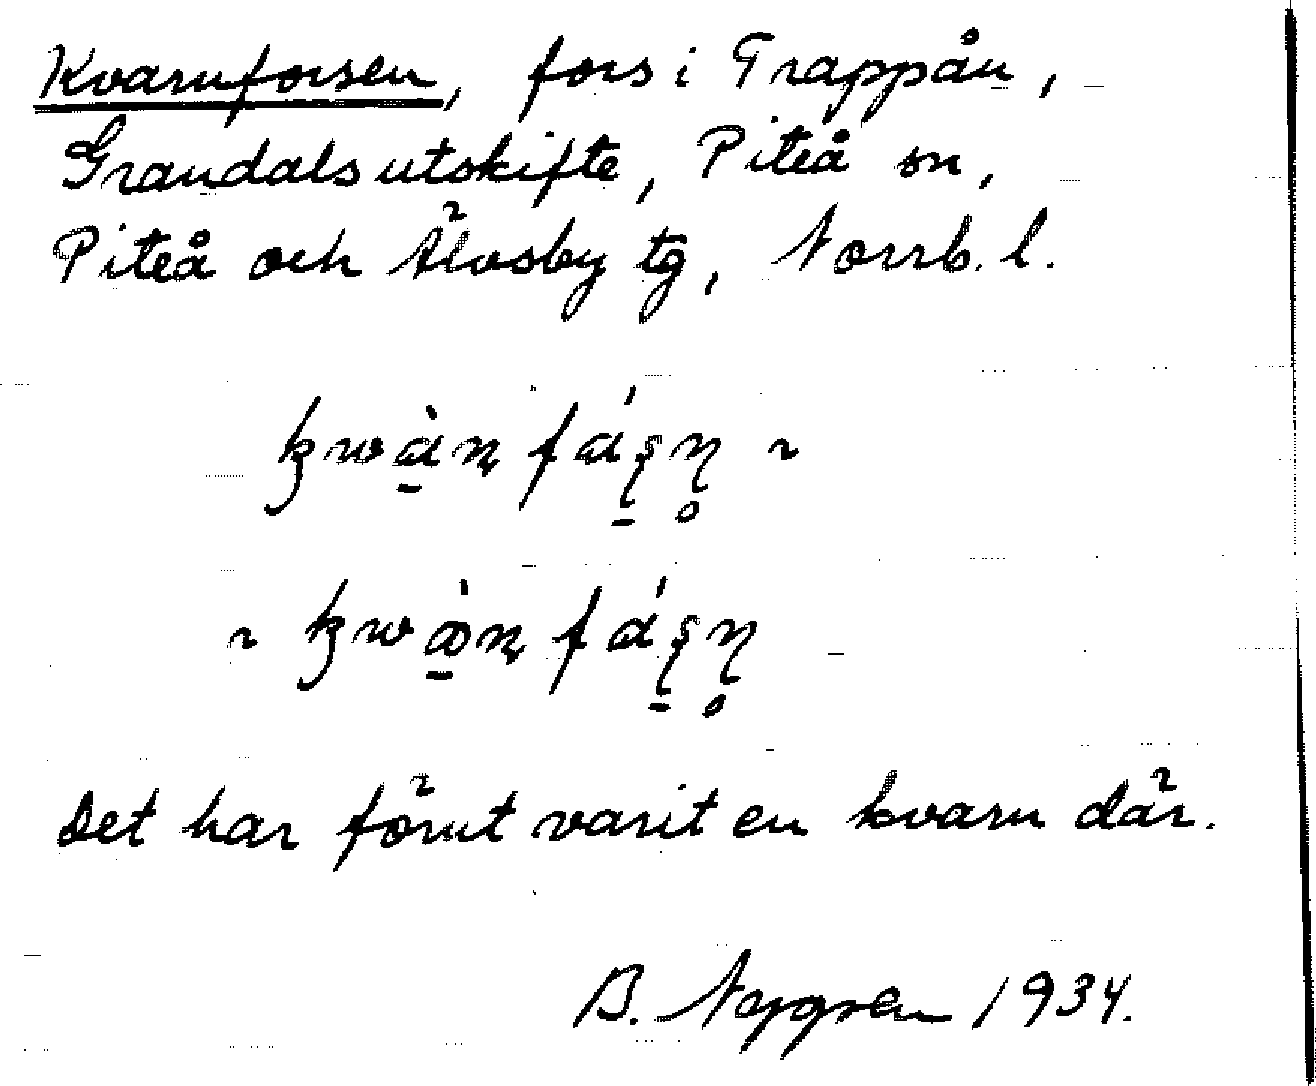 Kvarnforsen, fors i Trappån,
Grandals utskifte, Piteå sn,
Piteå och Älvsby tg, Norrb. l.
Det har förut varit en kvarn där.
B. Nygren 1934.